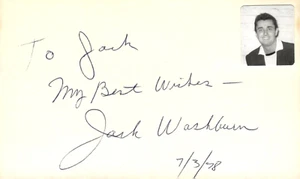 To Jack
My Best Wishes —
Jack Washburn
7/3/78